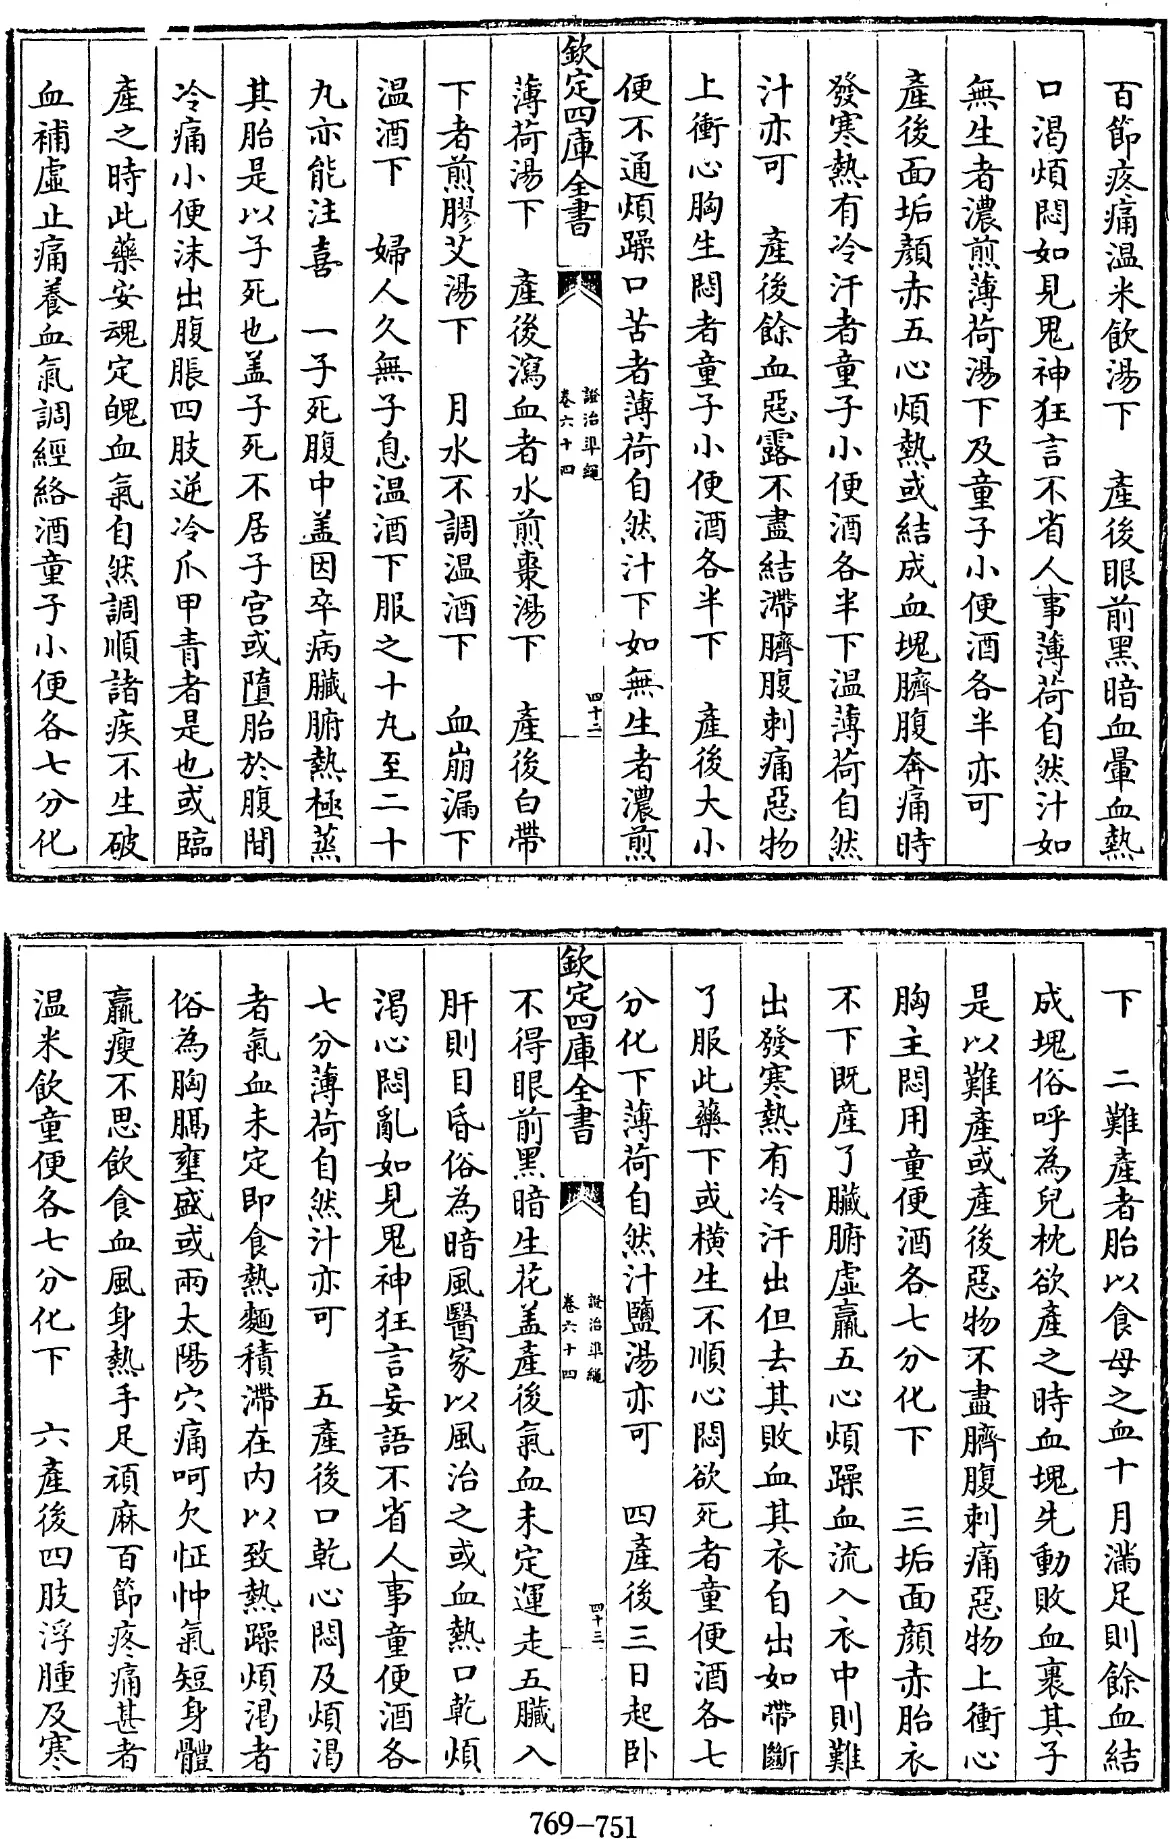 百節疼痛温米飲湯下　產後眼前黑暗血暈血熱
口渴煩悶如見鬼神狂言不省人事薄荷自然汁如
無生者濃煎薄荷湯下及童子小便酒各半亦可
產後面垢顏赤五心煩熱或結成血塊臍腹奔痛時
發寒熱有冷汗者童子小便酒各半下温薄荷自然
汁亦可　產後餘血惡露不盡結滯臍腹刺痛惡物
上衝心胸生悶者童子小便酒各半下　產後大小
便不通煩躁口苦者薄荷自然汁下如無生者濃煎
欽定四庫全書
證治準繩
卷六十四
四十二
薄荷湯下　產後瀉血者水煎棗湯下　產後白帶
下者煎膠艾湯下　月水不調温酒下　血崩漏下
温酒下　婦人久無子息温酒下服之十九至二十
九亦能注喜　一子死腹中盖因卒病臟腑熱極蒸
其胎是以子死也盖子死不居子宫或墮胎於腹間
冷痛小便沫出腹脹四肢逆冷爪甲青者是也或臨
產之時此藥安魂定魄血氣自然調順諸疾不生破
血補虛止痛養血氣調經絡酒童子小便各七分化
下　二難產者胎以食母之血十月滿足則餘血結
成塊俗呼為兒枕欲產之時血塊先動敗血裹其子
是以難產或產後惡物不盡臍腹刺痛惡物上衝心
胸主悶用童便酒各七分化下　三垢面顏赤胎衣
不下既產了臟腑虛羸五心煩躁血流入衣中則難
出發寒熱有冷汗出但去其敗血其衣自出如帶斷
了服此藥下或橫生不順心悶欲死者童便酒各七
分化下薄荷自然汁鹽湯亦可　四產後三日起卧
欽定四庫全書
證治準繩
卷六十四
四十三
不得眼前黑暗生花盖產後氣血未定運走五臟入
肝則目昏俗為暗風醫家以風治之或血熱口乾煩
渴心悶亂如見鬼神狂言妄語不省人事童便酒各
七分薄荷自然汁亦可　五產後口乾心悶及煩渴
者氣血未定即食熱麵積滯在内以致熱躁煩渴者
俗為胸膈壅盛或兩太陽穴痛呵欠怔忡氣短身體
羸瘦不思飲食血風身熱手足頑麻百節疼痛甚者
温米飲童便各七分化下　六產後四肢浮腫及寒
769-751